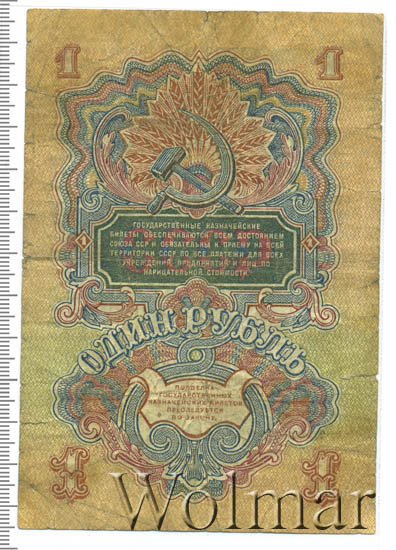 1 1
ГОСУДАРСТВЕННЫЕ КАЗНАЧЕЙСКИЕ
БИЛЕТЫ ОБЕСПЕЧИВАЮТСЯ ВСЕМ ДОСТОЯНИЕМ
СОЮЗА ССР И ОБЯЗАТЕЛЬНЫ К ПРИЕМУ НА ВСЕЙ
ТЕРРИТОРИИ СССР ВО ВСЕ ПЛАТЕЖИ ДЛЯ ВСЕХ
УЧРЕЖДЕНИЙ, ПРЕДПРИЯТИЙ И ЛИЦ ПО
НАРИЦАТЕЛЬНОЙ СТОИМОСТИ.
1 1
ОДИН РУБЛЬ
ПОДДЕЛКА
ГОСУДАРСТВЕННЫХ
КАЗНАЧЕЙСКИХ БИЛЕТОВ
ПРЕСЛЕДУЕТСЯ
ПО ЗАКОНУ.
1 1
Wolmar